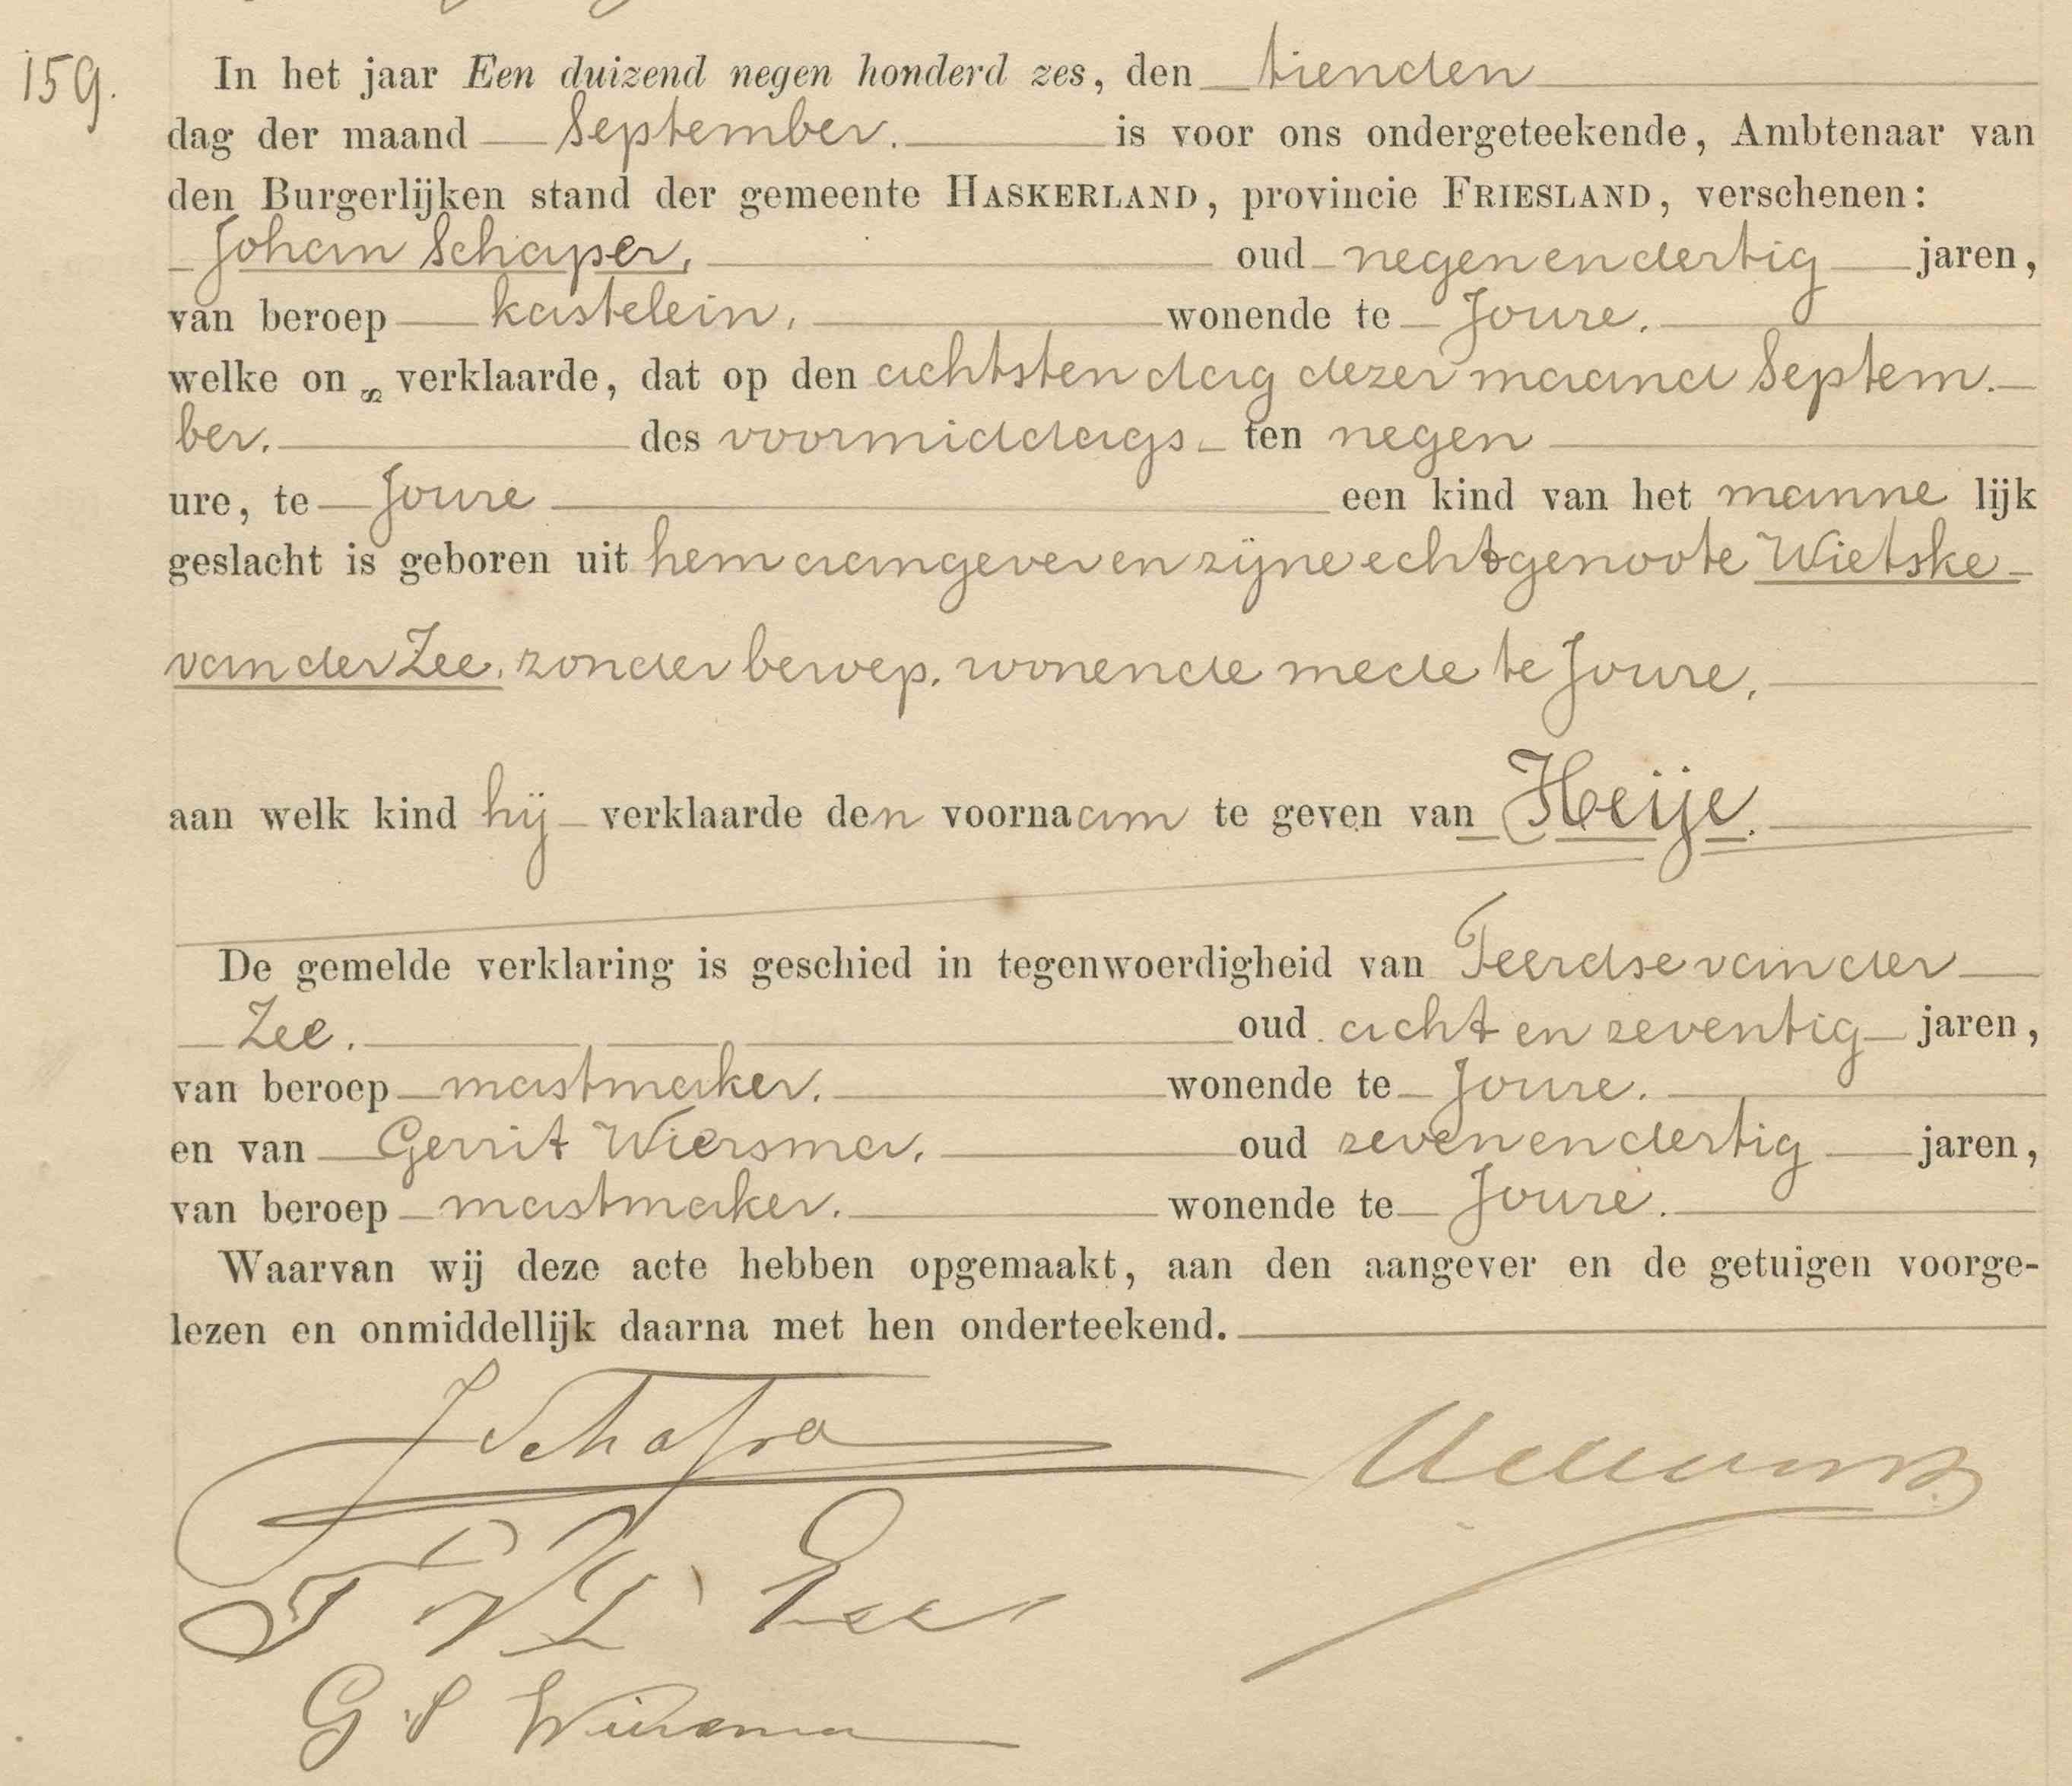 159.
In het jaar Een duizend negen honderd zes, den tienden
dag der maand September. is voor ons ondergeteekende, Ambtenaar van
den Burgerlijken stand der gemeente HASKERLAND, provincie FRIESLAND, verschenen:
Johan Schaper, oud negenendertig jaren,
van beroep kastelein, wonende te Joure.
welke ons verklaarde, dat op den achtsten dag dezer maand Septem-
ber. des voormiddags ten negen
ure, te Joure een kind van het manne lijk
geslacht is geboren uit hem aangever en zijne echtgenoote Wietske
van der Zee, zonder beroep, wonende mede te Joure,
aan welk kind hij verklaarde den voornaam te geven van Heije.
De gemelde verklaring is geschied in tegenwoerdigheid van Feerdse van der
Zee. oud acht en zeventig jaren,
van beroep mastmaker. wonende te Joure.
en van Gerrit Wiersma, oud zevenendertig jaren,
van beroep mastmaker. wonende te Joure.
Waarvan wij deze acte hebben opgemaakt, aan den aangever en de getuigen voorge-
lezen en onmiddellijk daarna met hen onderteekend.
J Schaper
F V D Zee
G S Wiersma